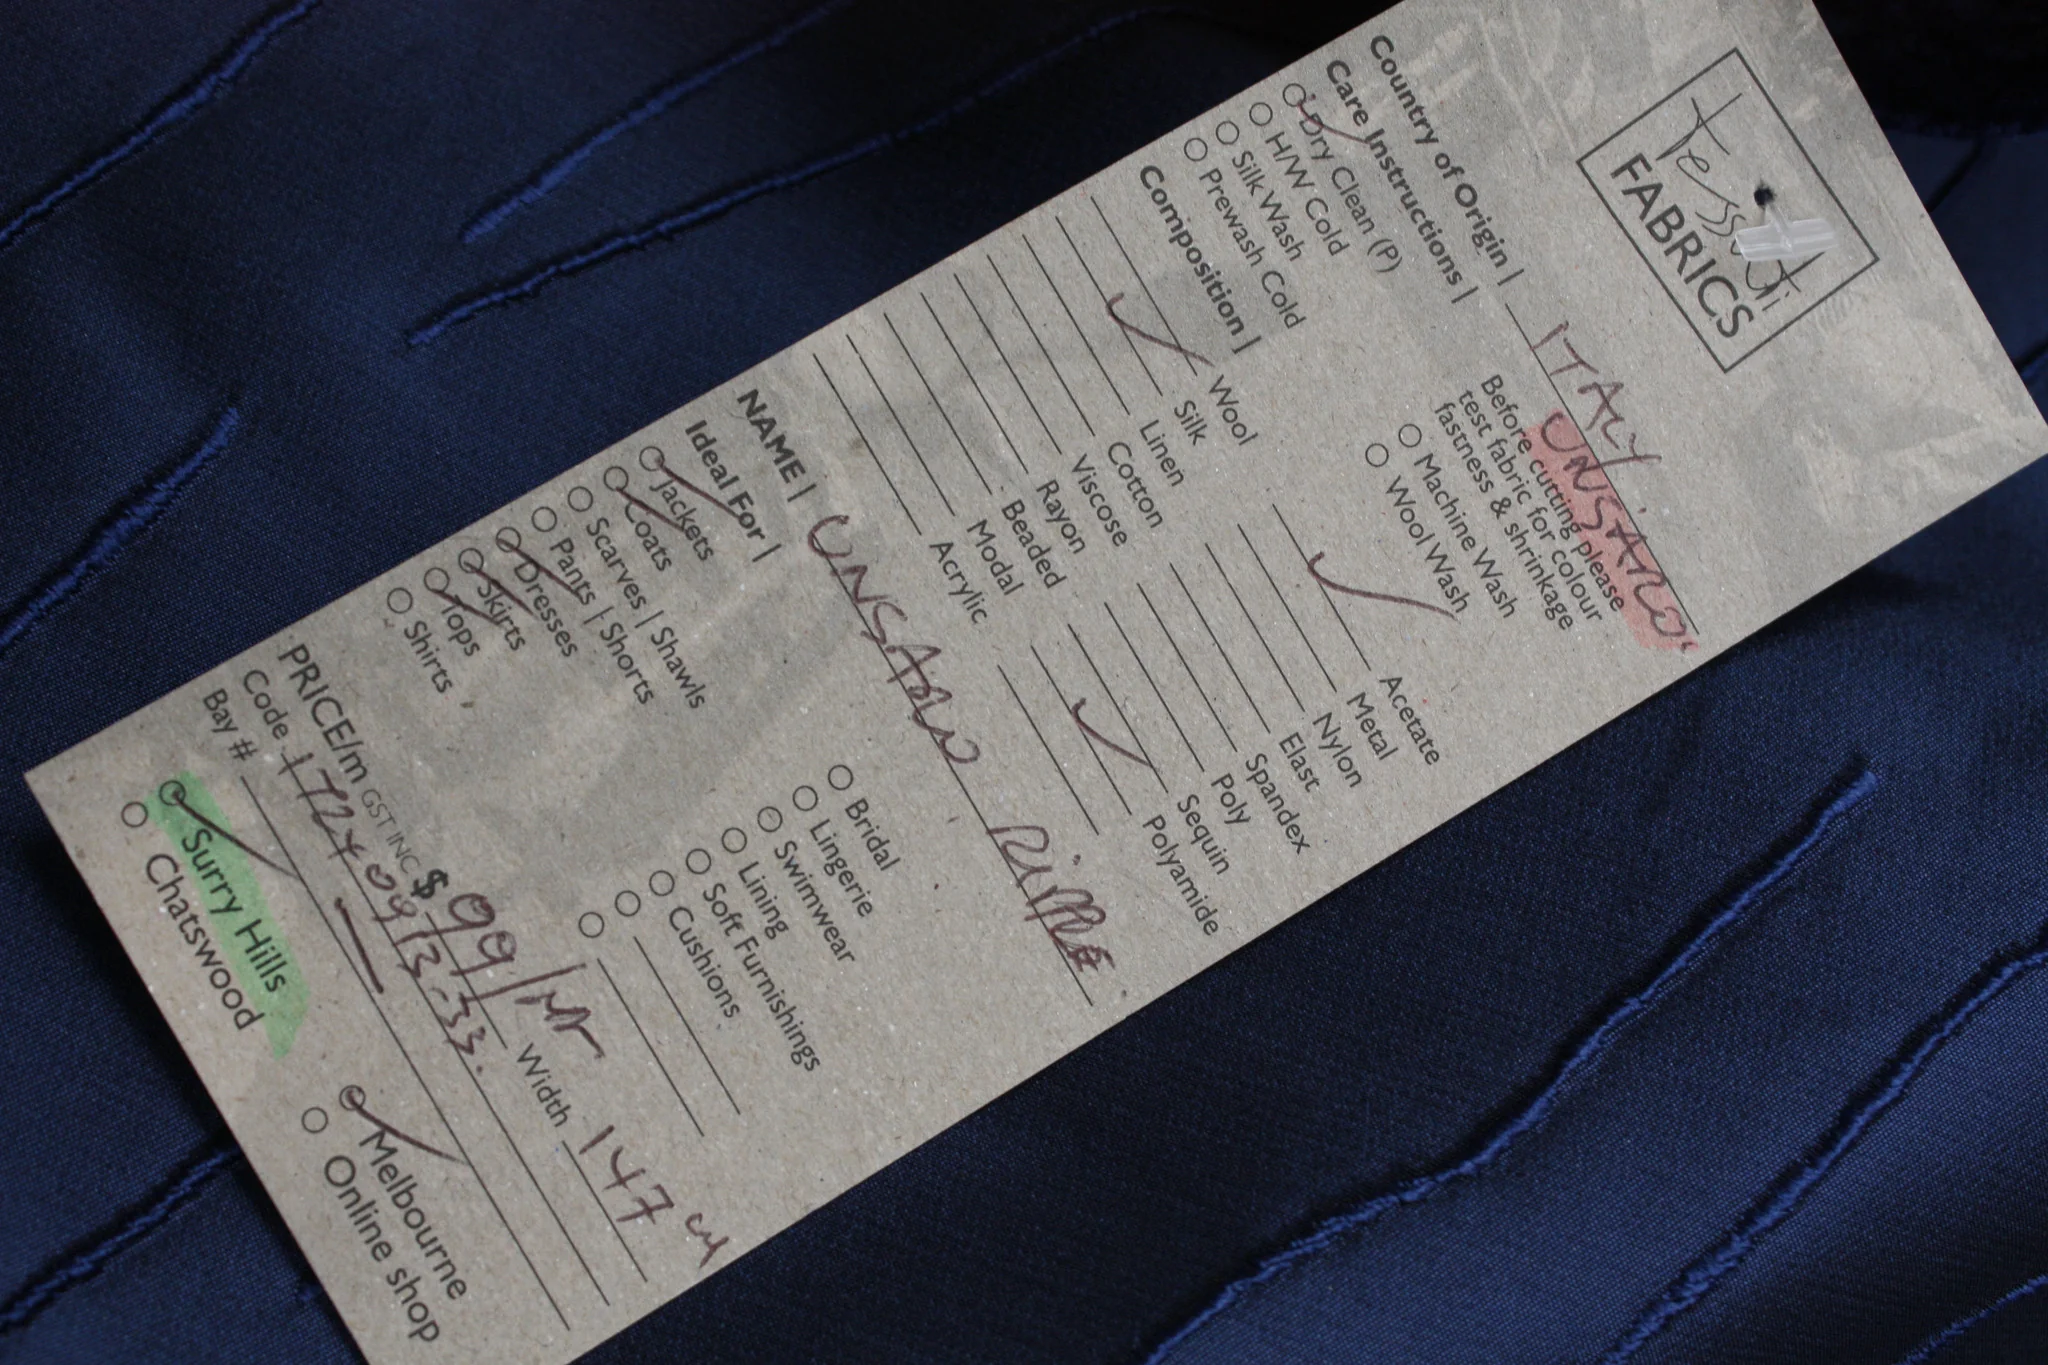 Tessuti
FABRICS
Country of Origin | ITALY
UNGARO
Care Instructions |
Before cutting please
test fabric for colour
fastness & shrinkage
Dry Clean (P)
H/W Cold
Silk Wash
Prewash Cold
Machine Wash
Wool Wash
Composition |
Wool
Silk
Linen
Cotton
Viscose
Rayon
Beaded
Modal
Acrylic
Acetate
Metal
Nylon
Elast
Spandex
Poly
Sequin
Polyamide
NAME | UNGARO RIPPLE
Ideal For |
Jackets
Coats
Scarves | Shawls
Pants | Shorts
Dresses
Skirts
Tops
Shirts
Bridal
Lingerie
Swimwear
Lining
Soft Furnishings
Cushions
PRICE/m GST INC $99/Mr Width 147 cm
Code 172409/3.33.
Bay #
Surry Hills
Chatswood
Melbourne
Online shop